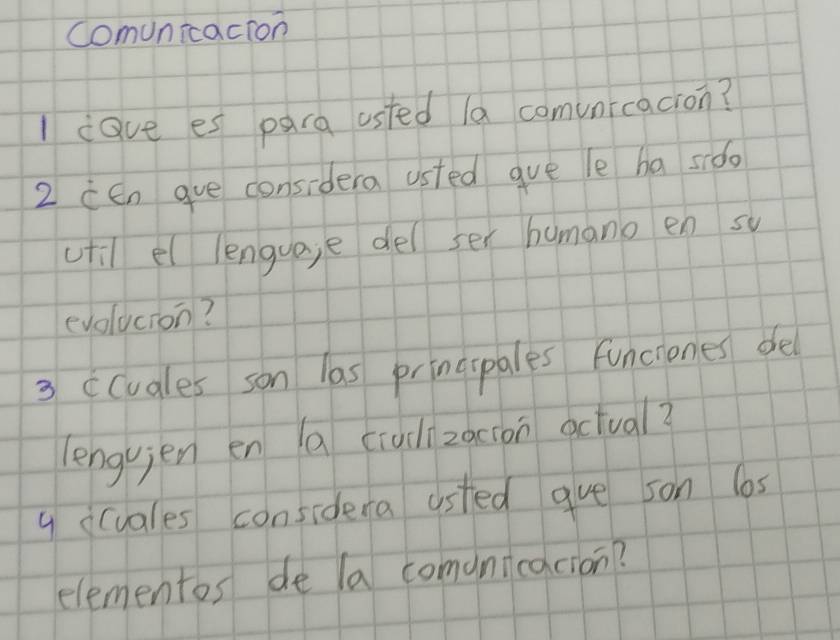 Comunicación
1 ¿Que es para usted la comunicación?
2 ¿En que considera usted que le ha sido
util el lenguaje del ser humano en su
evolución?
3 ¿Cuales son las principales funciones del
lengujen en la civilización actual?
4 ¿Cuales considera usted que son los
elementos de la comunicación?